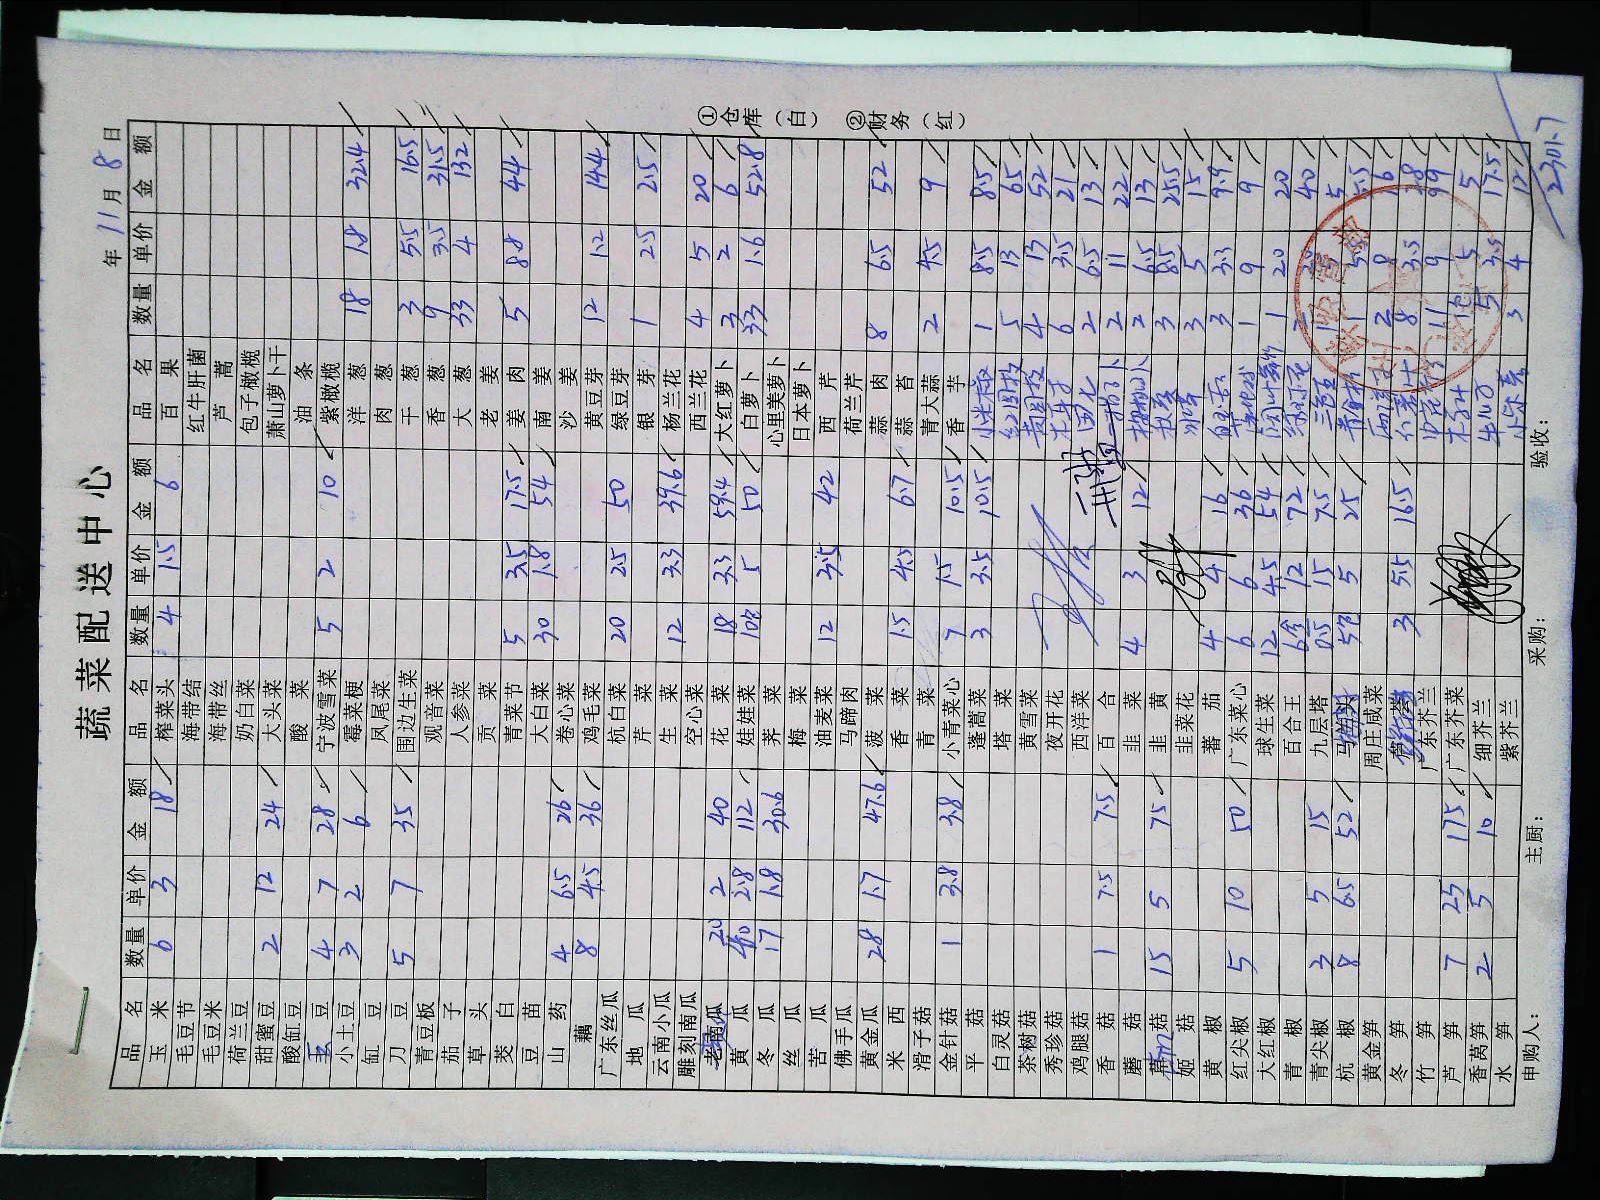 蔬菜配送中心
年 11 月 8 日
品名 数量 单价 金额 品名 数量 单价 金额 品名 数量 单价 金额
玉米 6 3 18 榨菜头 4 1.5 6 百果
毛豆节 海带结 红牛肝菌
毛豆米 海带丝 芦蒿
荷兰豆 奶白菜 包子橄榄
甜蜜豆 2 12 24 大头菜 萧山萝卜干
酸缸豆 酸菜 油条
豆 4 7 28 宁波雪菜 5 2 10 紫橄榄
小土豆 3 2 6 霉菜梗 洋葱 18 1.8 32.4
缸豆 凤尾菜 肉葱
刀豆 5 7 35 围边生菜 干葱 3 5.5 16.5
青豆板 观音菜 香葱 9 3.5 31.5
茄子 人参菜 大葱 33 4 132
草头 贡菜 老姜
茭白 青菜节 5 3.5 17.5 姜肉 5 8.8 44
豆苗 大白菜 30 1.8 54 南姜
山药 4 6.5 26 卷心菜 沙姜
藕 8 4.5 36 鸡毛菜 黄豆芽 12 1.2 14.4
广东丝瓜 杭白菜 20 2.5 50 绿豆芽
地瓜 芹菜 银芽 1 2.5 2.5
云南小瓜 生菜 12 3.3 39.6 杨兰花
雕刻南瓜 空心菜 西兰花 4 5 20
老南瓜 20 2 40 花菜 18 3.3 59.4 大红萝卜 3 2 6
黄瓜 40 2.8 112 娃娃菜 10 5 50 白萝卜 33 1.6 52.8
冬瓜 17 1.8 30.6 荠菜 心里美萝卜
丝瓜 梅菜 日本萝卜
苦瓜 油麦菜 12 3.5 42 西芹
佛手瓜 马蹄肉 荷兰芹
黄金瓜 28 1.7 47.6 菠菜 蒜肉 8 6.5 52
米西 香菜 1.5 4.5 6.7 蒜苔
滑子菇 青菜 青大蒜 2 4.5 9
金针菇 1 3.8 3.8 小青菜心 7 1.5 10.5 香芋
平菇 蓬蒿菜 3 3.5 10.5 小米椒 1 8.5 8.5
白灵菇 塔菜 红圆椒 5 13 65
茶树菇 黄雪菜 黄圆椒 4 13 52
秀珍菇 夜开花 6 3.5 21
鸡腿菇 西洋菜 2 6.5 13
香菇 1 7.5 7.5 百合 2 11 22
蘑菇 韭菜 4 3 12 2 6.5 13
菇 15 5 75 韭黄 3 8.5 25.5
姬菇 韭菜花 3 5 15
黄椒 蕃茄 4 4 16 3 3.3 9.9
红尖椒 5 10 50 广东菜心 6 6 36 1 9 9
大红椒 球生菜 12 4.5 54 1 20 20
青椒 百合王 6盒 12 72 40
青尖椒 3 5 15 九层塔 0.5 15 7.5 5
杭椒 8 6.5 52 5包 5 25 5.5
黄金笋 周庄咸菜 2 8 16
冬笋 3 5.5 16.5 8 3.5 28
竹笋 广东芥兰 11 9 99
芦笋 7 25 175 广东芥菜 5 5
香莴笋 2 5 10 细芥兰 5 3.5 17.5
水笋 紫芥兰 小 3 4 12
申购人： 主厨： 采购： 验收：
2301.7
①仓库（白） ②财务（红）